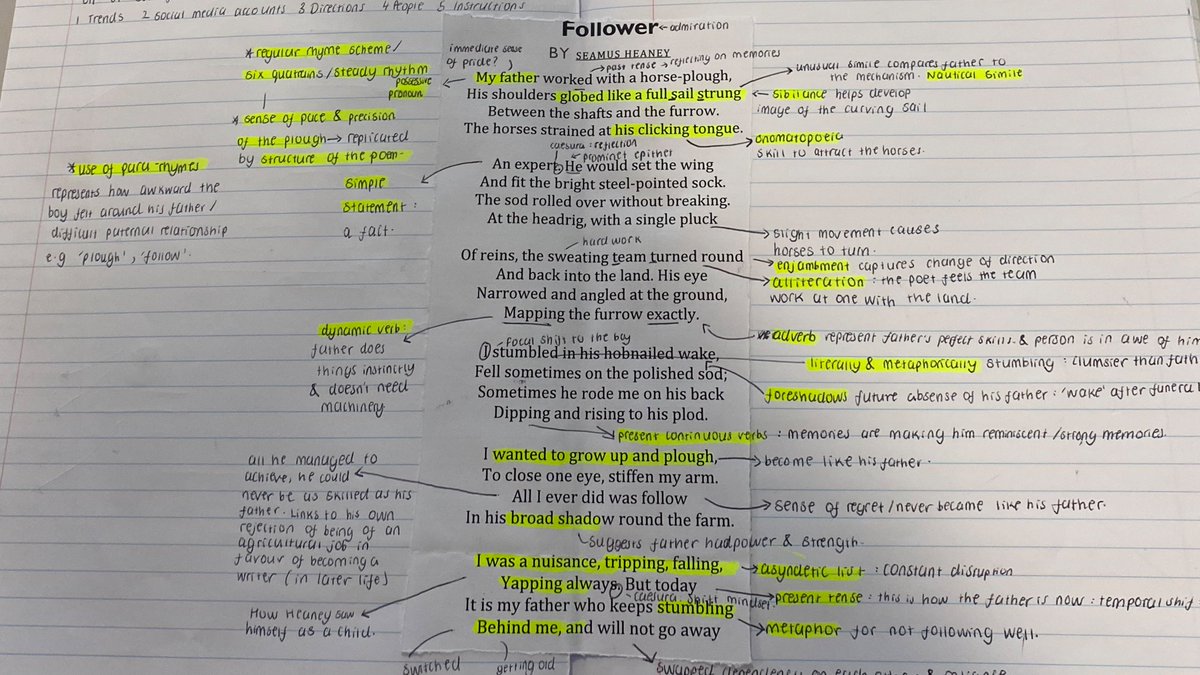 1 Trends 2 social media accounts 3 Directions 4 People 5 Instructions
Follower ← admiration
BY SEAMUS HEANEY
immedicire sense
of pride?
past tense → reflecting on memories
My father worked with a horse-plough,
His shoulders globed like a full sail strung
Between the shafts and the furrow.
The horses strained at his clicking tongue.
caesura : reflection
prominet epither
An expert. He would set the wing
And fit the bright steel-pointed sock.
The sod rolled over without breaking.
At the headrig, with a single pluck
hard work
Of reins, the sweating team turned round
And back into the land. His eye
Narrowed and angled at the ground,
Mapping the furrow exactly.
focal shift to the boy
I stumbled in his hobnailed wake,
Fell sometimes on the polished sod;
Sometimes he rode me on his back
Dipping and rising to his plod.
I wanted to grow up and plough,
To close one eye, stiffen my arm.
All I ever did was follow
In his broad shadow round the farm.
suggests father had power & strength.
I was a nuisance, tripping, falling,
Yapping always. But today
caesura : shift mindset
It is my father who keeps stumbling
Behind me, and will not go away
*regular rhyme scheme/
six quatrains/steady rhythm
possessive
pronoun
* sense of pace & precision
of the plough → replicated
by structure of the poem
*use of para-rhymes
represents how awkward the
boy felt around his father/
difficult paternal relationship
e.g 'plough', 'follow'.
simple
statement :
a fact.
dynamic verb:
father does
things instinctly
& doesn't need
machinery
all he managed to
achieve, he could
never be as skilled as his
father. Links to his own
rejection of being of an
agricultural job in
favour of becoming a
writer (in later life)
How Heaney saw
himself as a child.
switched
getting old
unusual simile compares father to
the mechanism. Nautical simile
← sibilance helps develop
image of the curving sail
onomatopoeia
skill to attract the horses.
slight movement causes
horses to turn.
enjambment captures change of direction
alliteration : the poet feels the team
work at one with the land.
adverb represent father's perfect skills & person is in awe of him
literally & metaphorically stumbling : clumsier than fath
foreshadows future absense of his father : 'wake' after funeral
present continuous verbs : memories are making him reminiscent/strong memories.
become like his father.
sense of regret/never became like his father.
asyndetic list : constant disruption
present tense : this is how the father is now : temporal shift
metaphor for not following well.
swapped